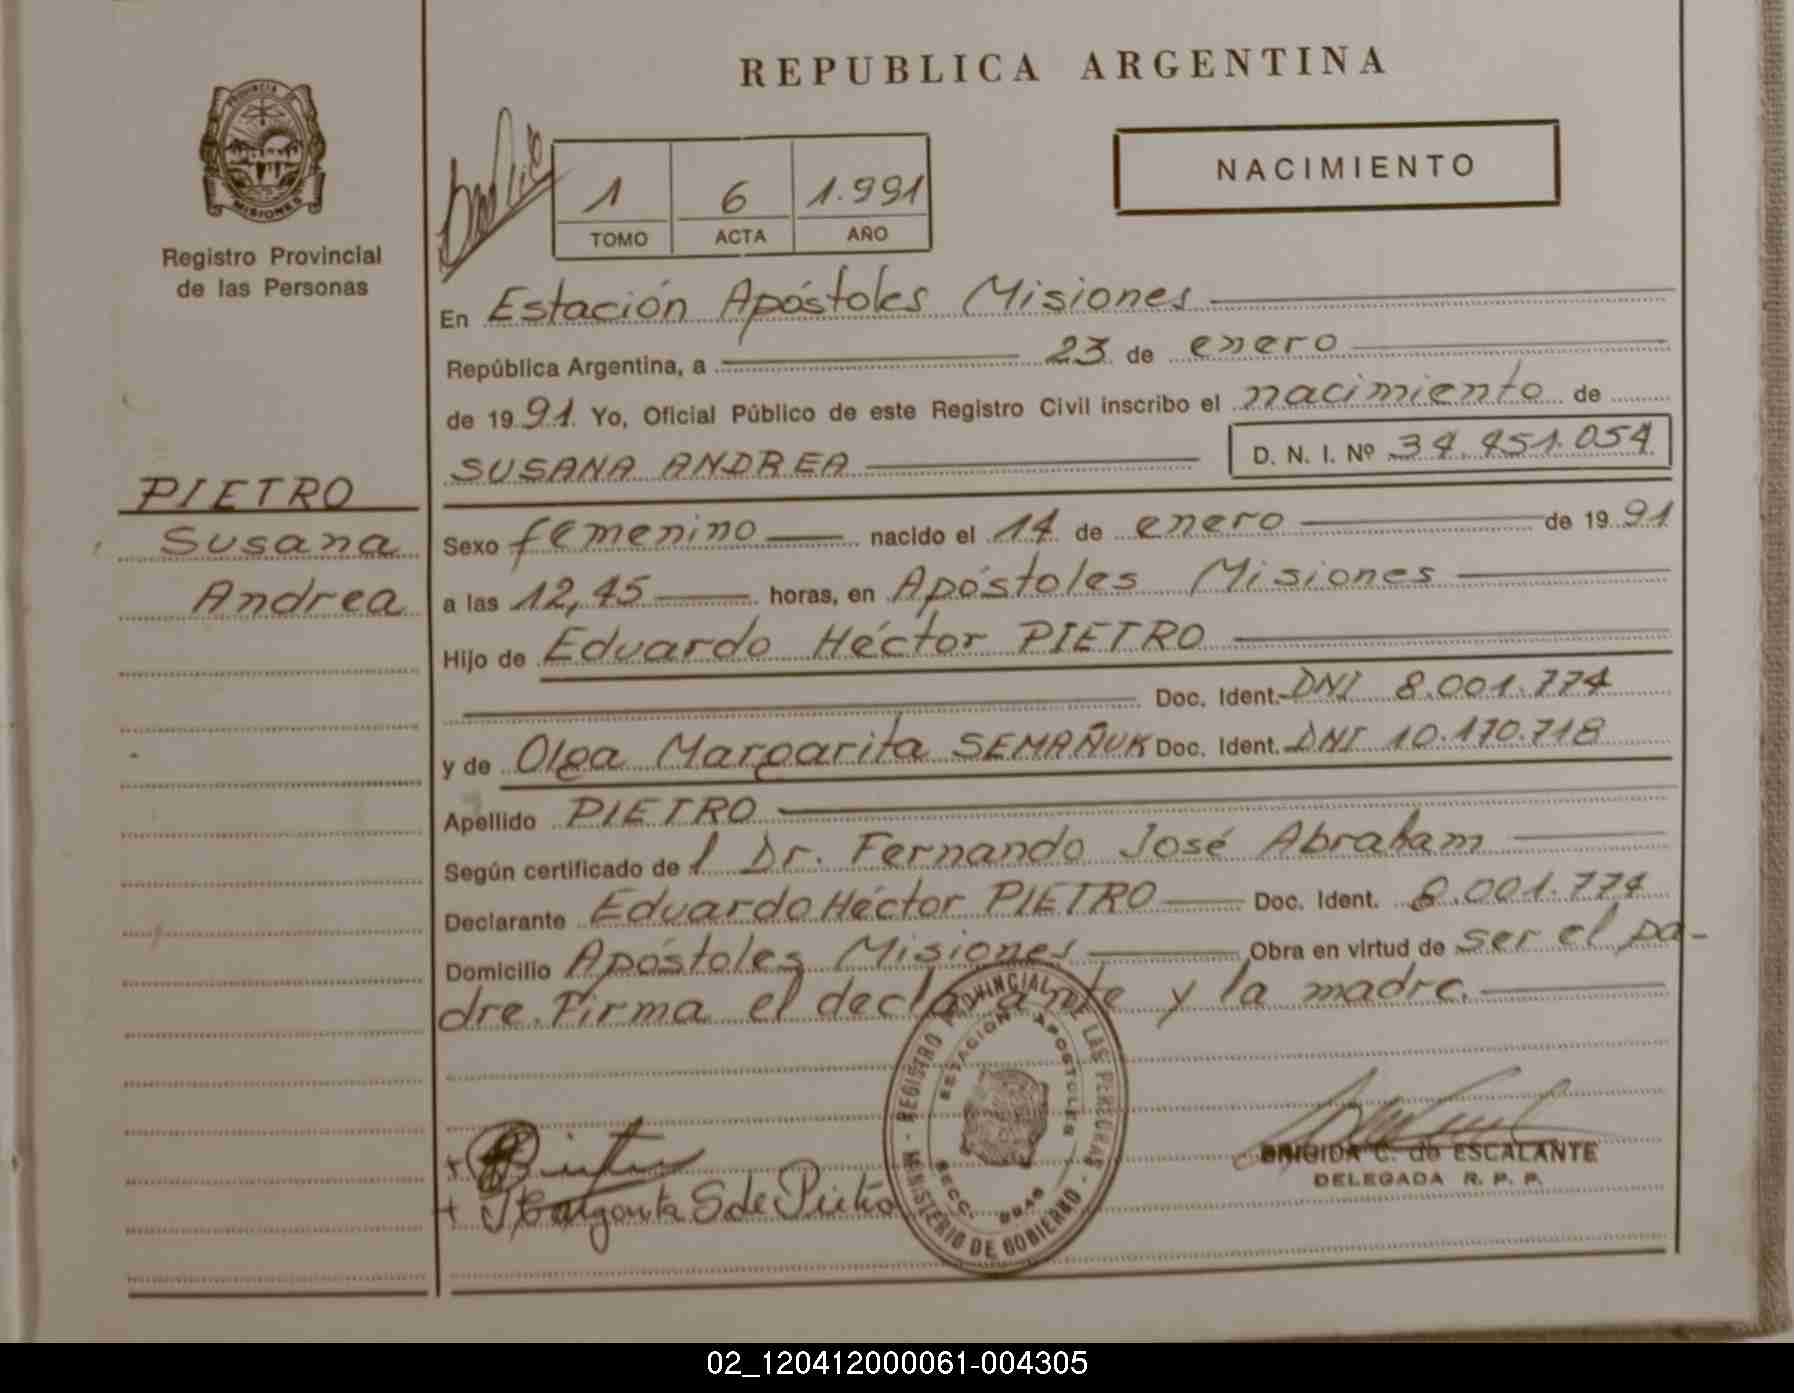 REPUBLICA ARGENTINA
PROVINCIA
MISIONES
Registro Provincial
de las Personas
1 6 1.991
TOMO ACTA AÑO
NACIMIENTO
En Estación Apóstoles Misiones
República Argentina, a 23 de enero
de 1991 Yo, Oficial Público de este Registro Civil inscribo el nacimiento de
SUSANA ANDREA D. N. I. Nº 34.451.054
PIETRO
Susana
Andrea
Sexo femenino nacido el 14 de enero de 1991
a las 12,45 horas, en Apóstoles Misiones
Hijo de Eduardo Héctor PIETRO
Doc. Ident. DNI 8.001.774
y de Olga Margarita SEMAÑUK Doc. Ident. DNI 10.170.718
Apellido PIETRO
Según certificado de l Dr. Fernando José Abraham
Declarante Eduardo Héctor PIETRO Doc. Ident. 8.001.774
Domicilio Apóstoles Misiones Obra en virtud de ser el pa-
dre. Firma el declarante y la madre.
REGISTRO PROVINCIAL DE LAS PERSONAS
ESTACION APOSTOLES
SECC.
MINISTERIO DE GOBIERNO
+ Margarita S de Pietro
BRIGIDA C. de ESCALANTE
DELEGADA R. P. P.
02_120412000061-004305